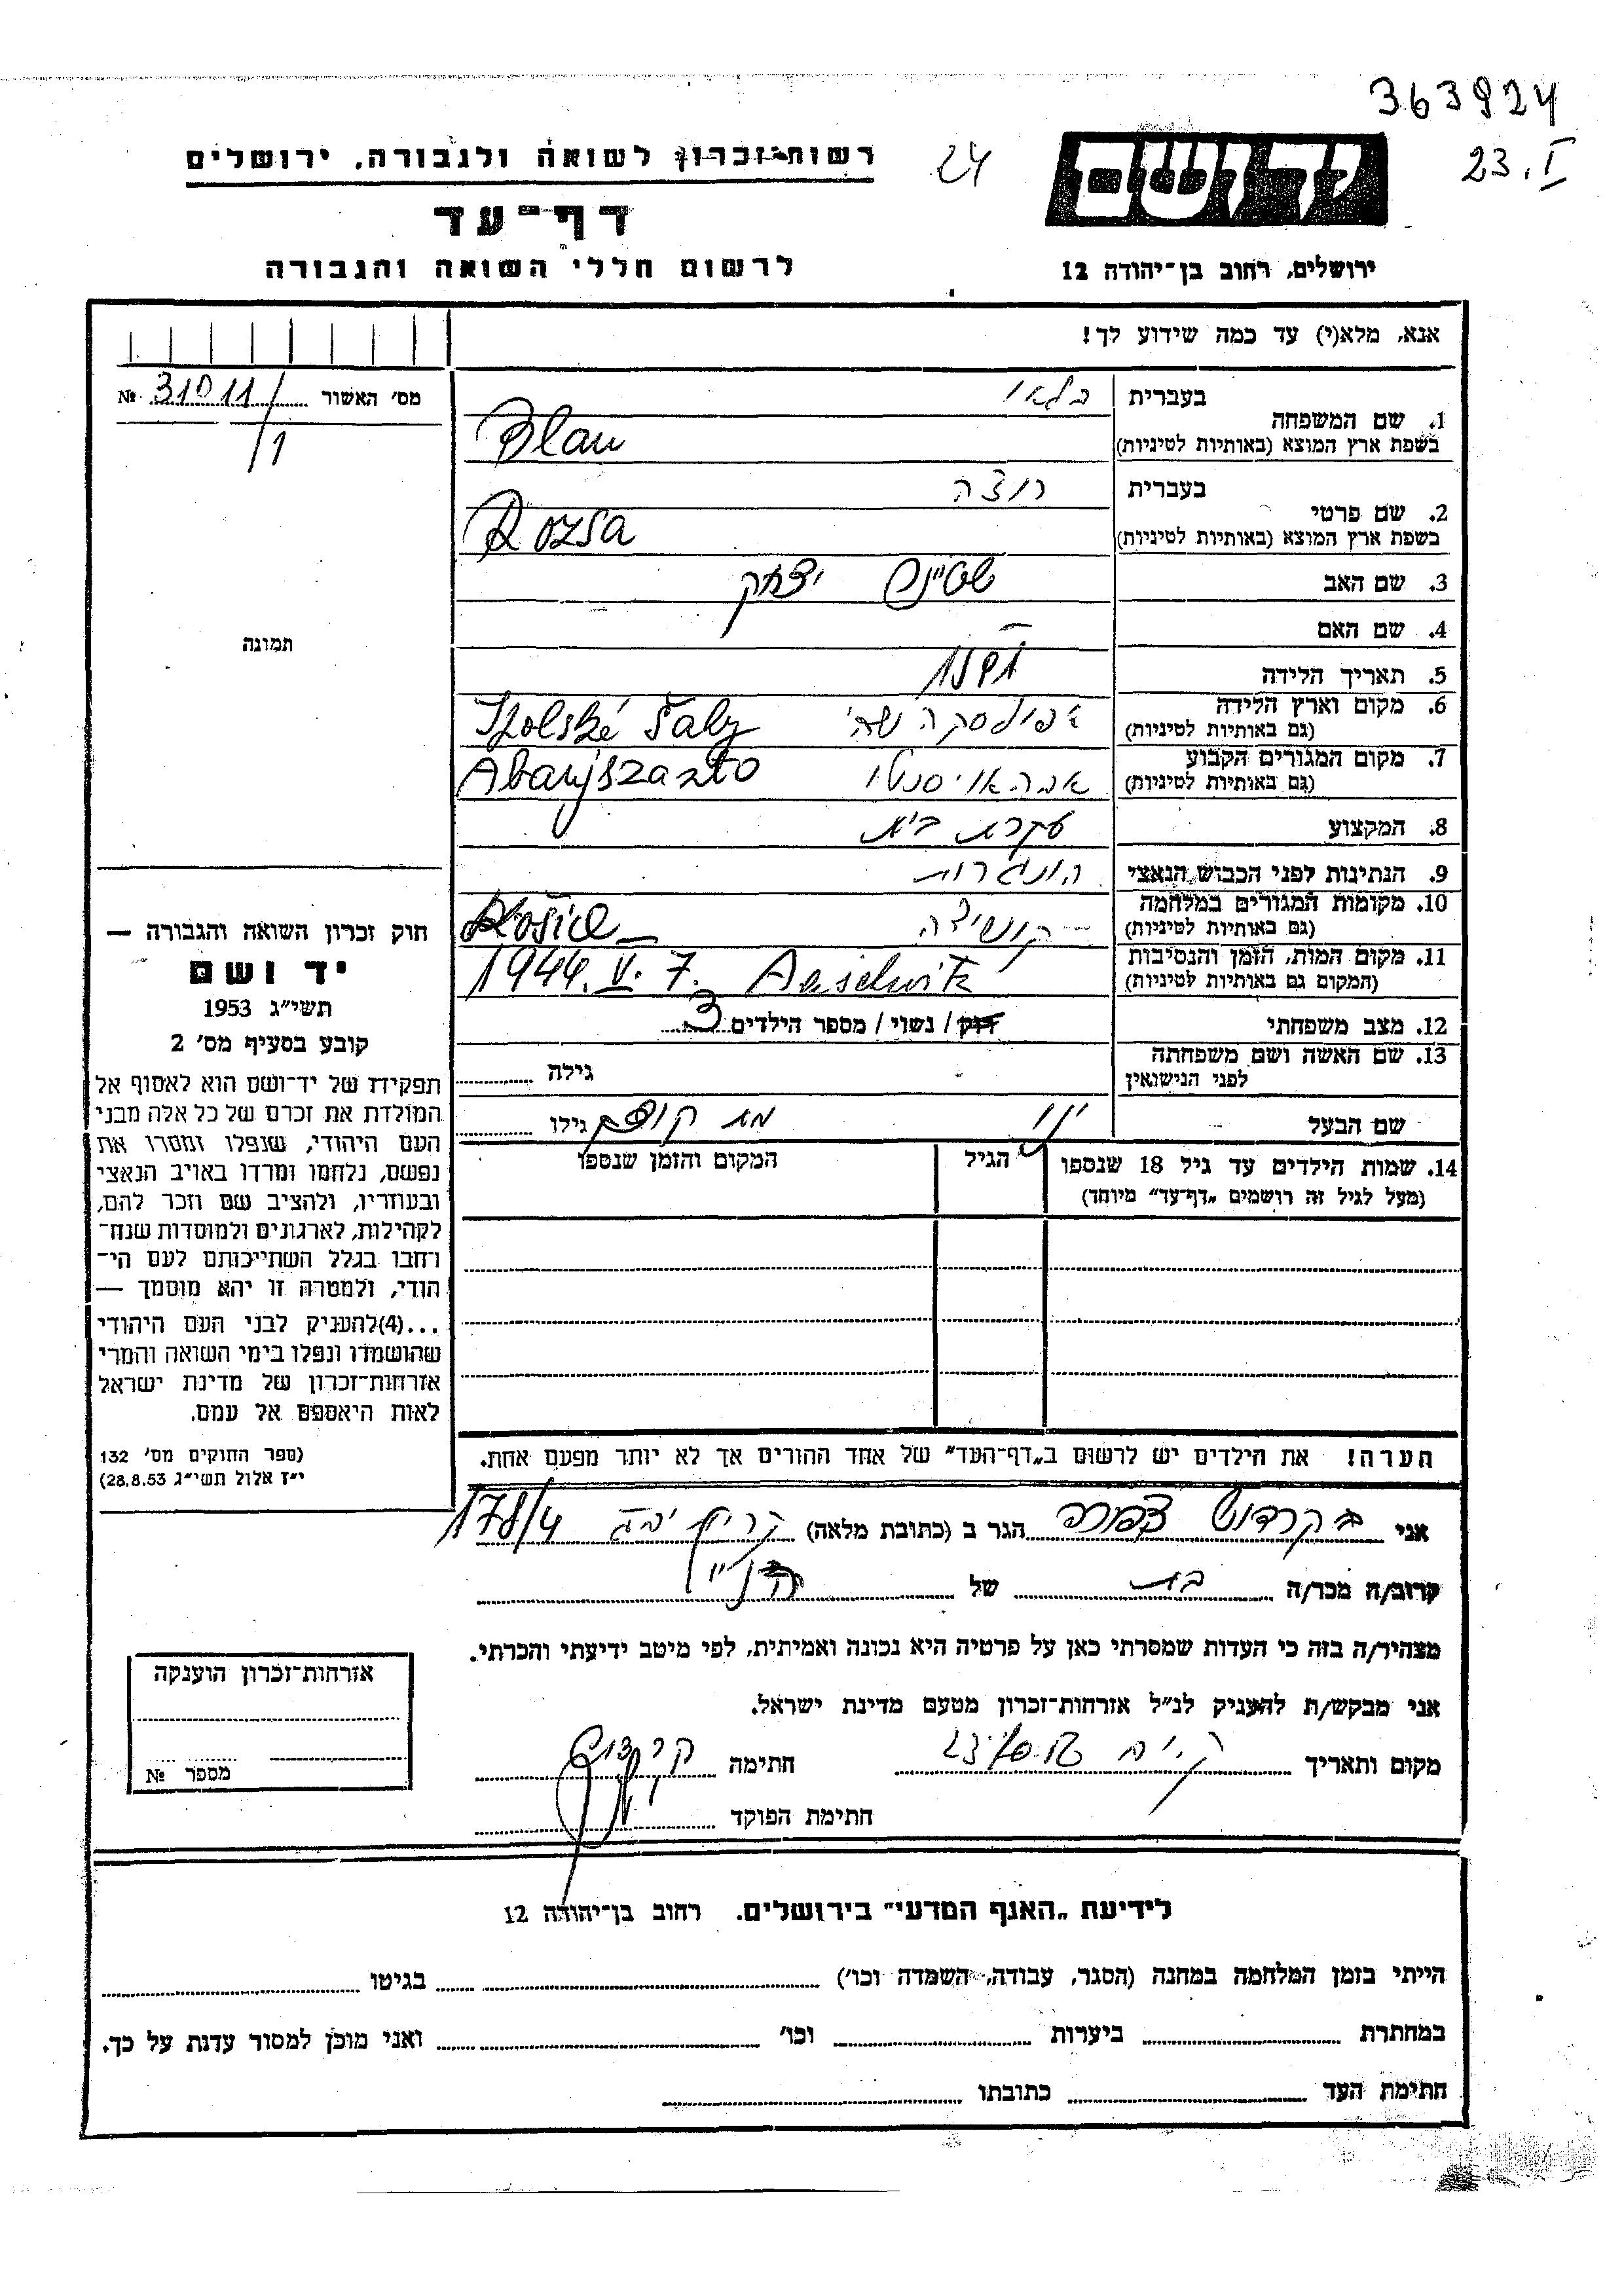 363924
23.I
24
יד ושם
רשות-זכרון לשואה ולגבורה, ירושלים
דף-עד
לרשום חללי השואה והגבורה
ירושלים, רחוב בן-יהודה 12
אנא, מלא(י) עד כמה שידוע לך!
מס' האשור № 31011/
/1
תמונה
בעברית בלאו
1. שם המשפחה
בשפת ארץ המוצא (באותיות לטיניות) Blau
בעברית רוזה
2. שם פרטי
בשפת ארץ המוצא (באותיות לטיניות) Rozsa
3. שם האב יצחק
4. שם האם —
5. תאריך הלידה
6. מקום וארץ הלידה
(גם באותיות לטיניות)
7. מקום המגורים הקבוע
(גם באותיות לטיניות) Abaujszanto
8. המקצוע עקרת בית
9. הנתינות לפני הכבוש הנאצי הונגרית
10. מקומות המגורים במלחמה
(גם באותיות לטיניות) קושיצה Košice
11. מקום המות, הזמן והנסיבות
(המקום גם באותיות לטיניות) 1944. V. 7. Auschwitz
12. מצב משפחתי רוק / נשוי / מספר הילדים 3
13. שם האשה ושם משפחתה
לפני הנישואין גילה
שם הבעל גילו
14. שמות הילדים עד גיל 18 שנספו הגיל המקום והזמן שנספו
(מעל לגיל זה רושמים „דף-עד" מיוחד)
חוק זכרון השואה והגבורה —
יד ושם
תשי"ג 1953
קובע בסעיף מס' 2
תפקידו של יד-ושם הוא לאסוף אל
המולדת את זכרם של כל אלה מבני
העם היהודי, שנפלו ומסרו את
נפשם, נלחמו ומרדו באויב הנאצי
ובעוזריו, ולהציב שם וזכר להם,
לקהילות, לארגונים ולמוסדות שנח-
רחבו בגלל השתייכותם לעם הי-
הודי, ולמטרה זו יהא מוסמך —
...(4)להעניק לבני העם היהודי
שהושמדו ונפלו בימי השואה והמרי
אזרחות-זכרון של מדינת ישראל
לאות היאספם אל עמם.
(ספר החוקים מס' 132
י"ז אלול תשי"ג 28.8.53)
הערה! את הילדים יש לרשום ב„דף-העד" של אחד ההורים אך לא יותר מפעם אחת.
אני הגר ב (כתובת מלאה) 178/4
קרוב/ה מכר/ה בת של
מצהיר/ה בזה כי העדות שמסרתי כאן על פרטיה היא נכונה ואמיתית, לפי מיטב ידיעתי והכרתי.
אני מבקש/ת להעניק לנ"ל אזרחות-זכרון מטעם מדינת ישראל.
מקום ותאריך חתימה
חתימת הפוקד
אזרחות-זכרון הוענקה
מספר №
לידיעת „האגף המדעי" בירושלים. רחוב בן-יהודה 12
הייתי בזמן המלחמה במחנה (הסגר, עבודה, השמדה וכו') בגיטו
במחתרת ביערות וכו' ואני מוכן למסור עדות על כך.
חתימת העד כתובתו